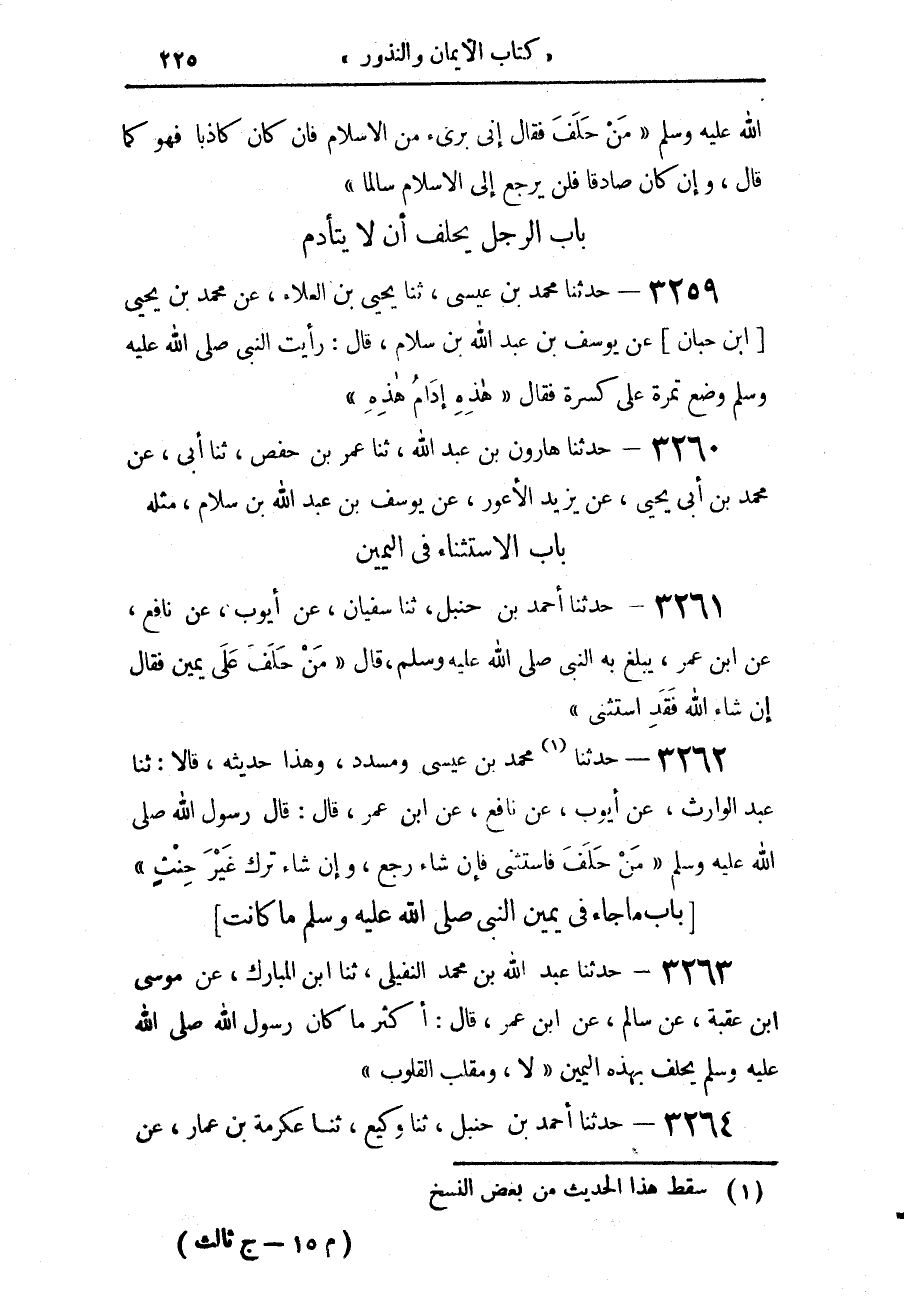 « كتاب الأيمان والنذور » ٢٢٥
الله عليه وسلم « مَنْ حَلَفَ فقال إنى برىء من الاسلام فان كان كاذبا فهو كما
قال ، وإن كان صادقا فلن يرجع إلى الاسلام سالما »
باب الرجل يحلف أن لا يتأدم
٣٢٥٩ — حدثنا محمد بن عيسى ، ثنا يحيى بن العلاء ، عن محمد بن يحيى
[ ابن حبان ] عن يوسف بن عبد الله بن سلام ، قال : رأيت النبى صلى الله عليه
وسلم وضع تمرة على كسرة فقال « هٰذِهِ إدَامُ هٰذِهِ »
٣٢٦٠ — حدثنا هارون بن عبد الله ، ثنا عمر بن حفص ، ثنا أبى ، عن
محمد بن أبى يحيى ، عن يزيد الأعور ، عن يوسف بن عبد الله بن سلام ، مثله
باب الاستثناء فى اليمين
٣٢٦١ — حدثنا أحمد بن حنبل ، ثنا سفيان ، عن أيوب ، عن نافع ،
عن ابن عمر ، يبلغ به النبى صلى الله عليه وسلم ، قال « مَنْ حَلَفَ عَلَى يمين فقال
إن شاء الله فَقَدِ استثنى »
٣٢٦٢ — حدثنا (١) محمد بن عيسى ومسدد ، وهذا حديثه ، قالا : ثنا
عبد الوارث ، عن أيوب ، عن نافع ، عن ابن عمر ، قال : قال رسول الله صلى
الله عليه وسلم « مَنْ حَلَفَ فاستثنى فإن شاء رجع ، وإن شاء ترك غَيْرَ حِنْثٍ »
[ باب ماجاء فى يمين النبى صلى الله عليه وسلم ما كانت ]
٣٢٦٣ — حدثنا عبد الله بن محمد النفيلى ، ثنا ابن المبارك ، عن موسى
ابن عقبة ، عن سالم ، عن ابن عمر ، قال : أكثر ما كان رسول الله صلى الله
عليه وسلم يحلف بهذه اليمين « لا ، ومقلب القلوب »
٣٢٦٤ — حدثنا أحمد بن حنبل ، ثنا وكيع ، ثنا عكرمة بن عمار ، عن
(١) سقط هذا الحديث من بعض النسخ
( م ١٥ — ج ثالث )